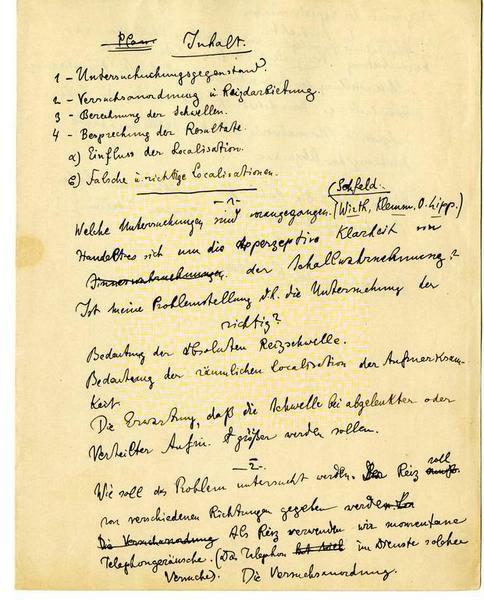 Plan Inhalt.
1 - Untersuchungsgegenstand.
2 - Versuchsanordnung u Reizdarbietung.
3 - Berechnung der Schwellen.
4 - Besprechung der Resultate.
a) Einfluss der Localisation.
b) Falsche u. richtige Localisationen.
-1-
(Sehfeld.
Welche Untersuchungen sind vorangegangen. (Wirth, Klemm, O. Lipp.)
Handelt es sich um die apperzeptive Klarheit von
Sinneswahrnehmungen der Schallwahrnehmung?
Ist meine Problemstellung d.h. die Untersuchung der
richtig?
Bedeutung der absoluten Reizschwelle.
Bedeutung der räumlichen Localisation der Aufmerksam-
keit.
Die Erwartung, daß die Schwelle bei abgelenkter oder
verteilter Aufm. größer werden sollen.
-2-
Wie soll das Problem untersucht werden. Reiz soll
von verschiedenen Richtungen gegeben werden.
Die Versuchsanordnung Als Reiz verwenden wir momentane
Telephongeräusche. (Das Telephon im Dienste solcher
Versuche). Die Versuchsanordnung.